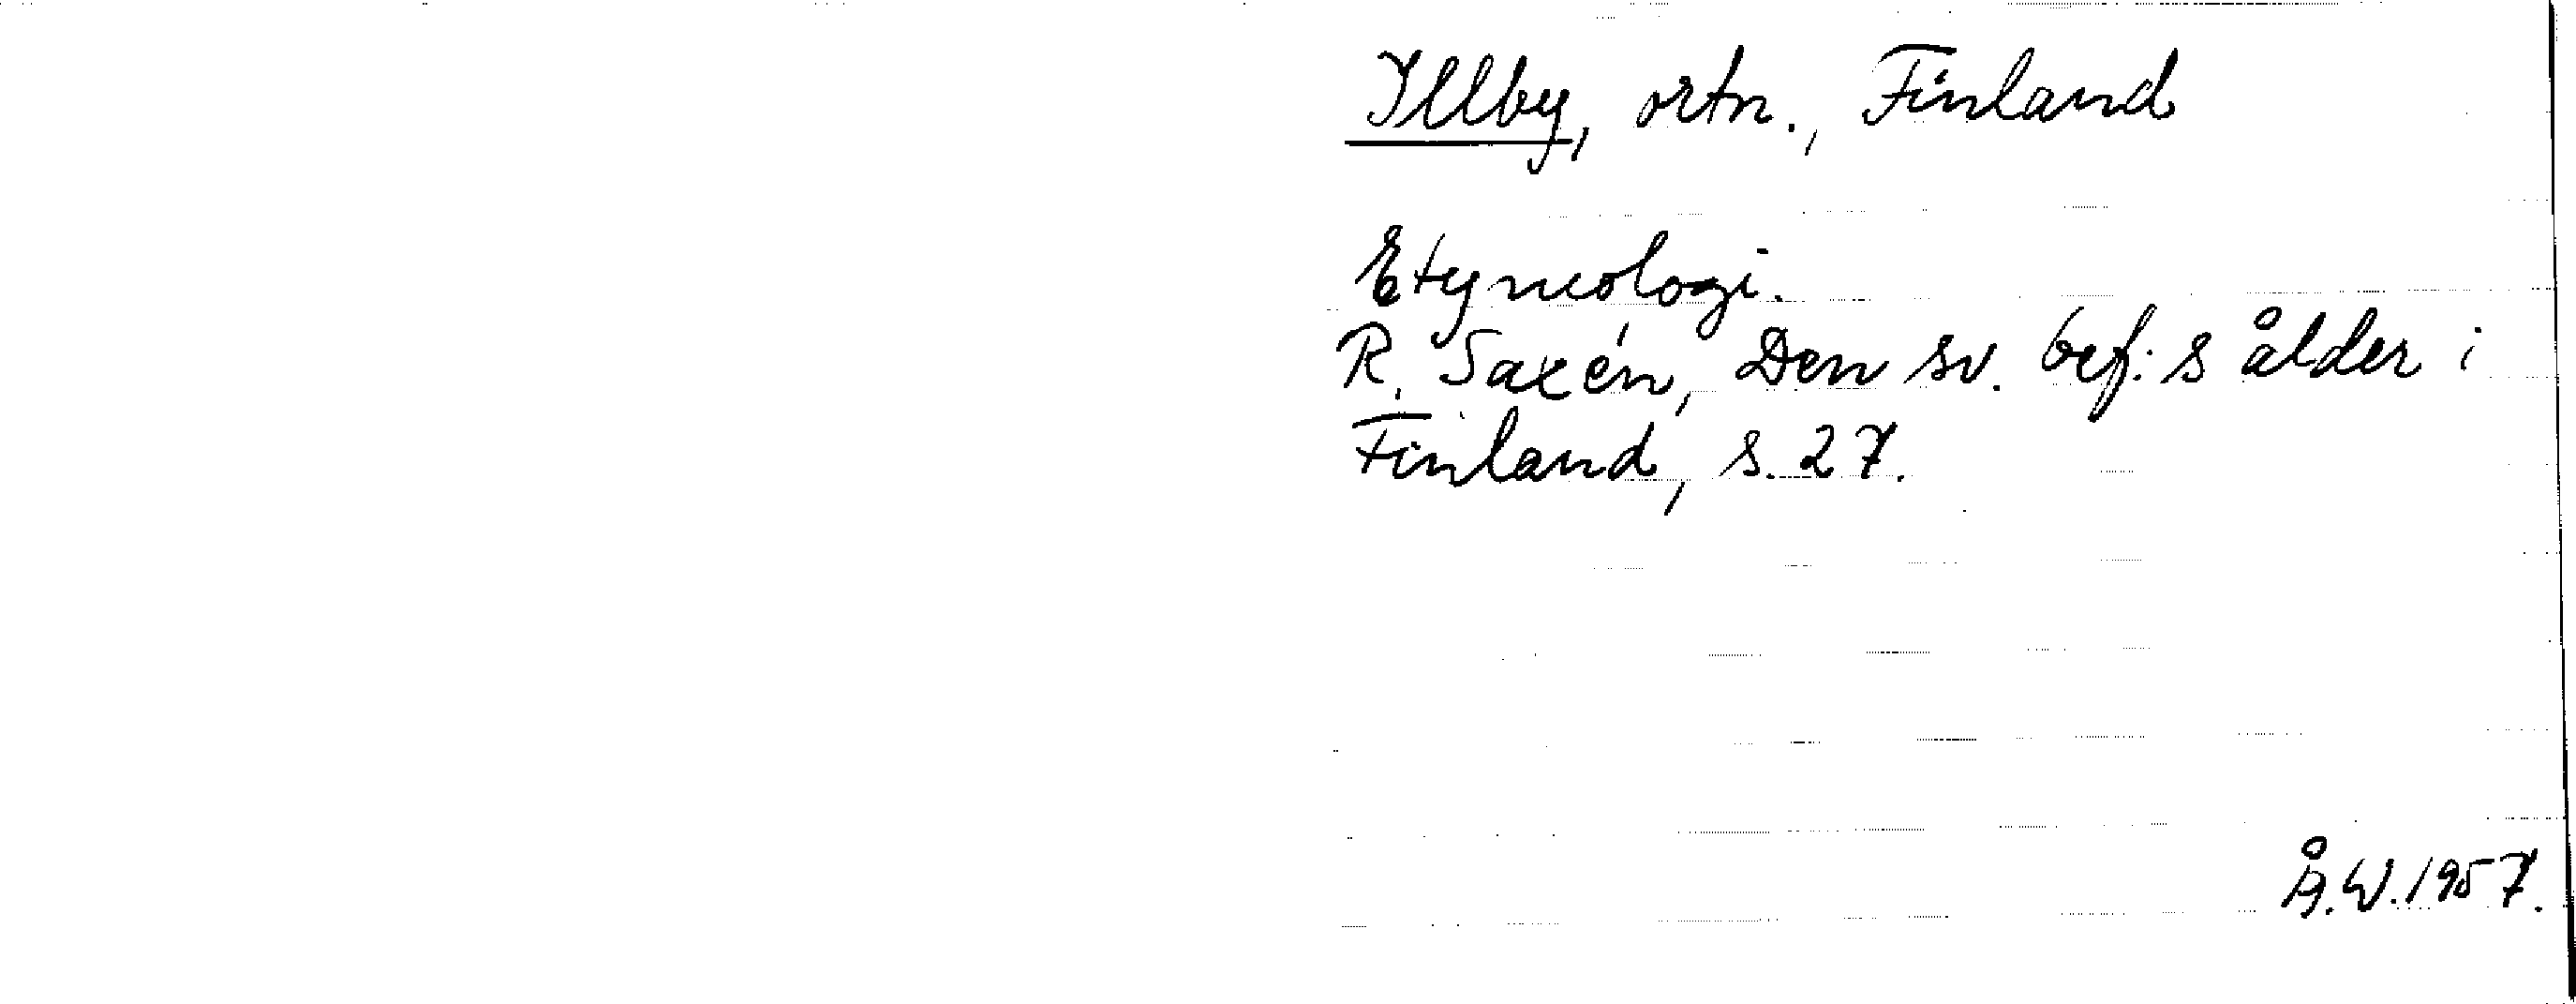 Illby, ortn., Finland
Etymologi.
R. Saxén, Den sv. bef:s ålder i
Finland, s. 27.
Å.W. 1957.